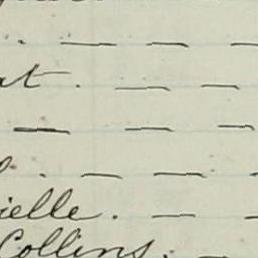 . — — —
at . — — —
— — —
. — — —
ielle . — —
Collins . — —